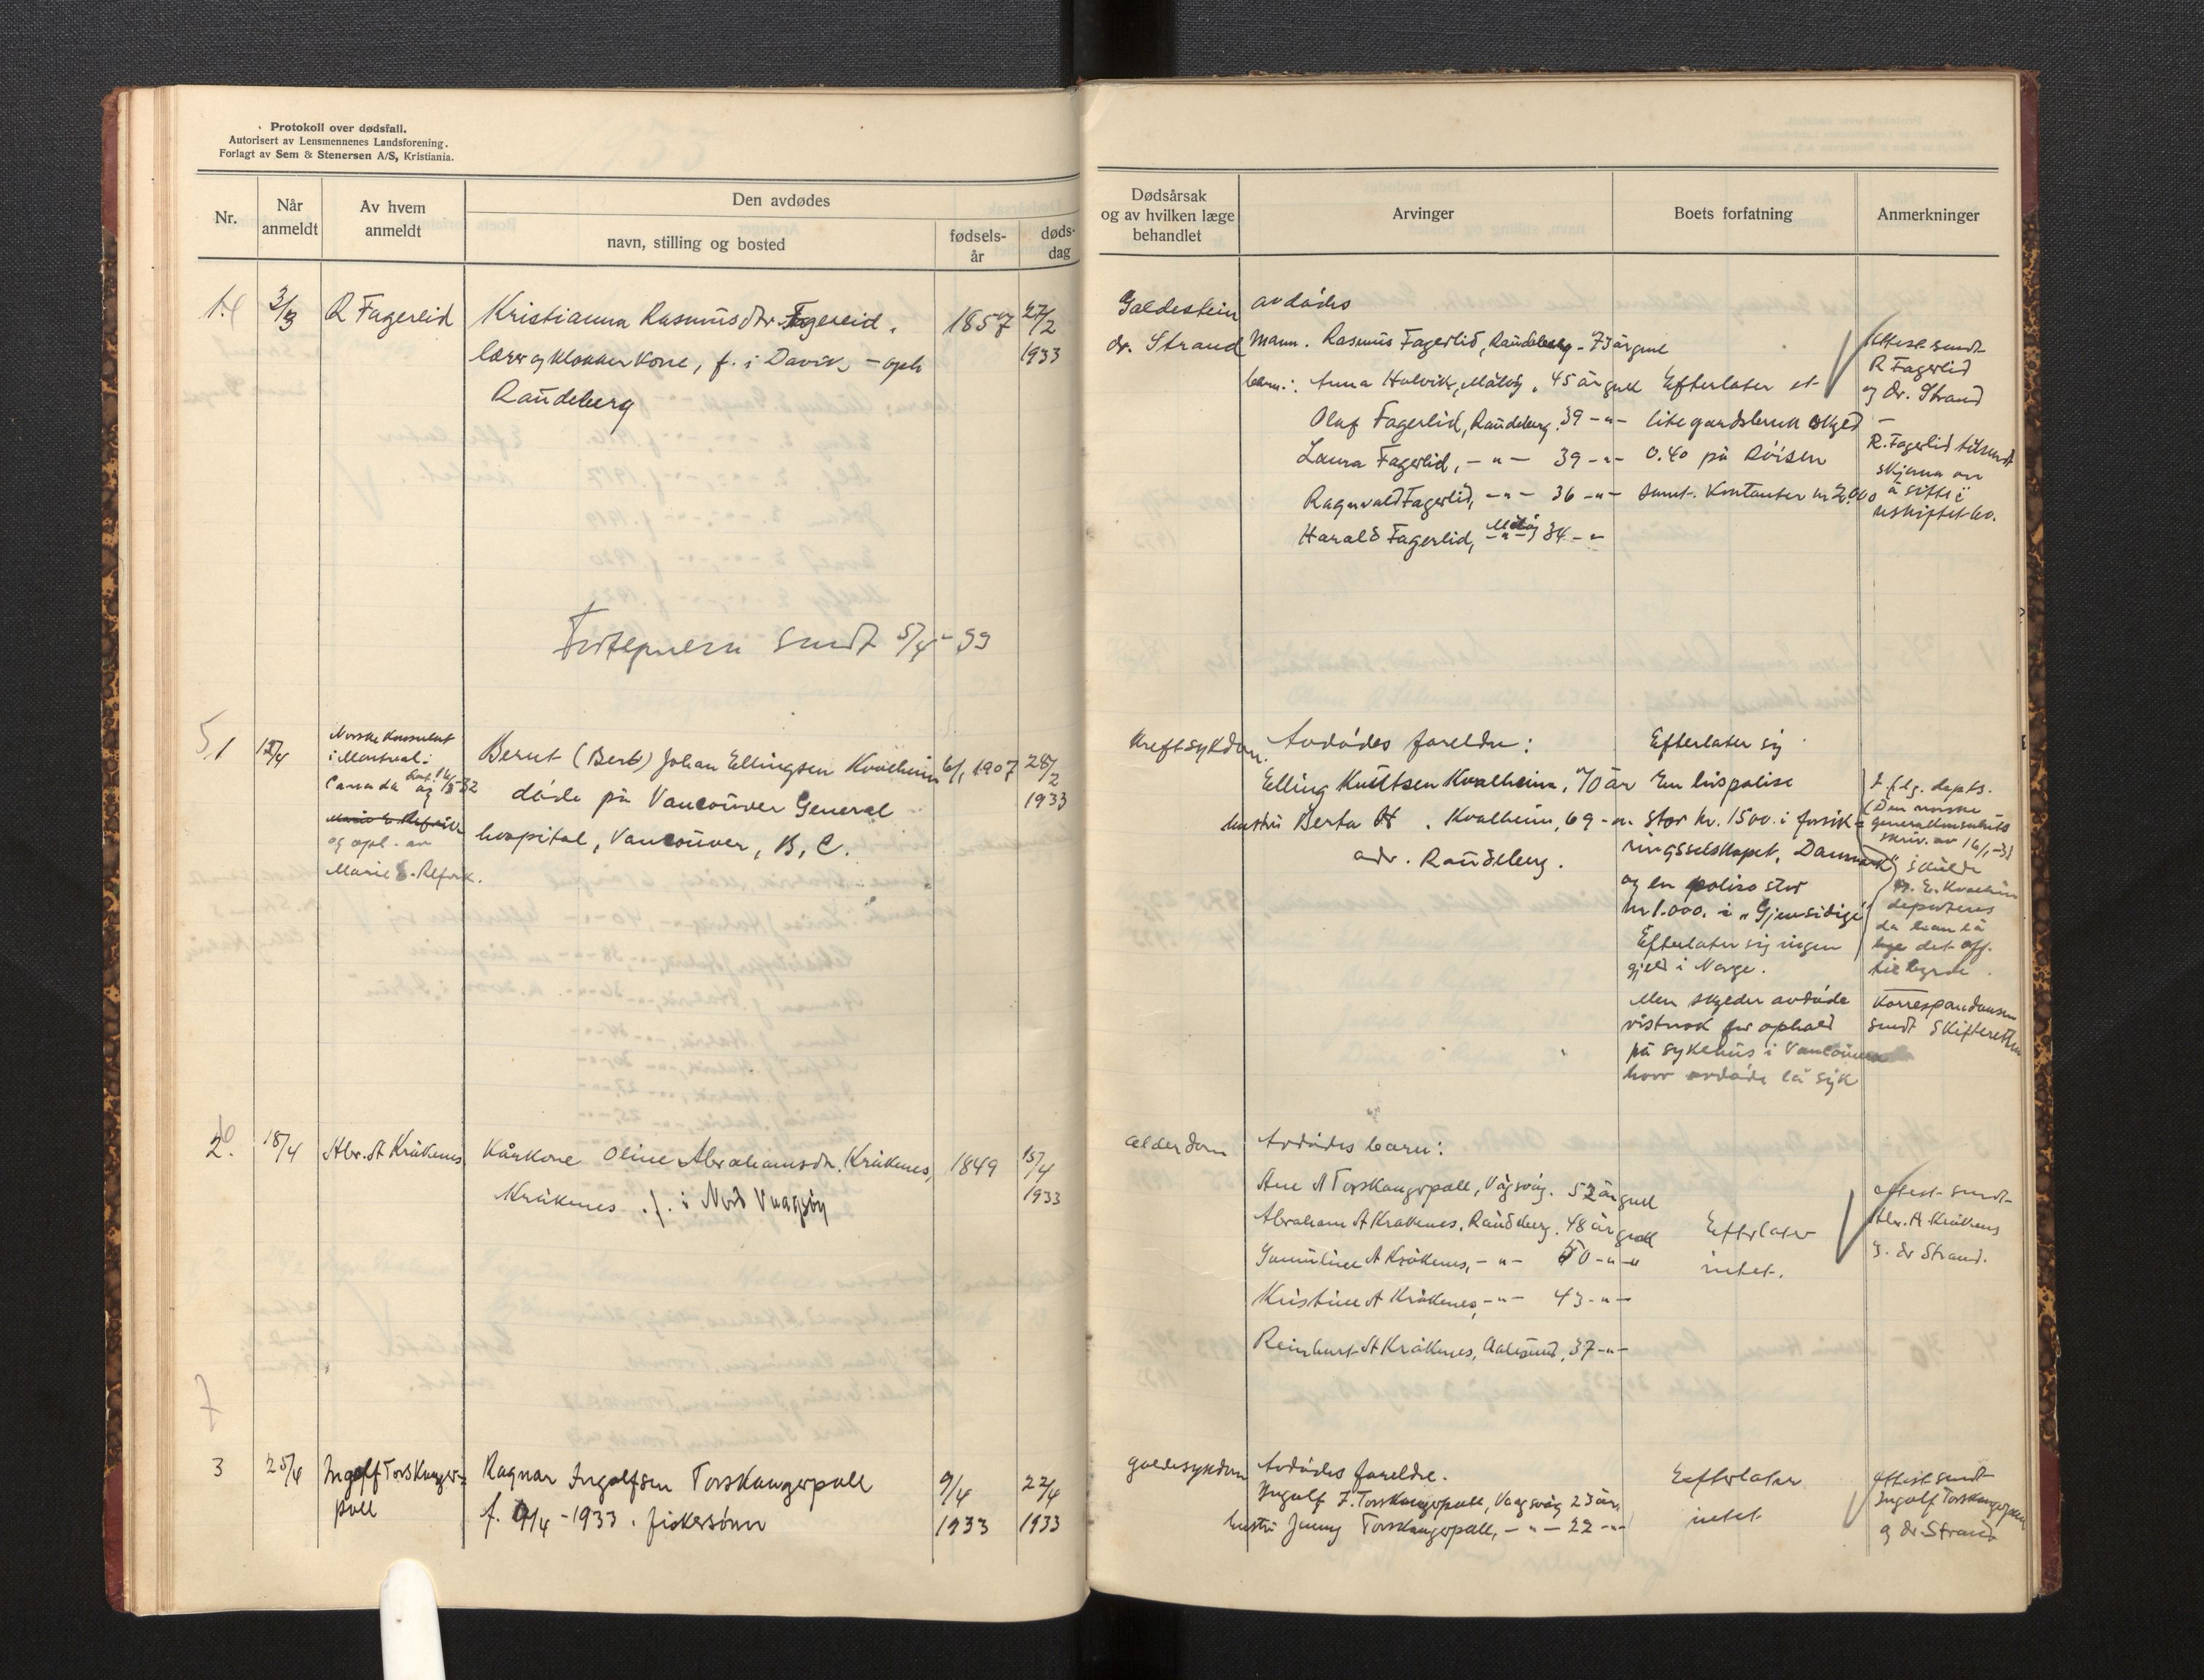 Protokoll over dødsfall.
Autorisert av Lensmennenes Landsforening.
Forlagt av Sem & Stenersen A/S, Kristiania.
Nr.
Når anmeldt
Av hvem anmeldt
Den avdødes
navn, stilling og bosted
fødsels-år
døds-dag
Dødsårsak og av hvilken læge behandlet
Arvinger
Boets forfatning
Anmerkninger
3/3
R Fagerlid
Kristianna Rasmusdtr. Fagerlid.
lærer og klokker kone, f. i Davik, - oph
Raudeberg
1857
27/2
1933
Galdestein
dr. Strand
avdødes
Mann. Rasmus Fagerlid, Raudeberg - 73 år gml
barn: Anna Halvik, Måløy, 45 år gml
Olaf Fagerlid, Raudeberg. 39 -"-
Laura Fagerlid, -"- 39 -"-
Ragnvald Fagerlid, -"- 36 -"-
Harald Fagerlid, Måløy 34 -"-
Efterlater et
lite gardsbruk skyld
0.40 på Röisen
samt. Kontanter kr 2.000
Attest sendt
R Fagerlid
og dr. Strand
R. Fagerlid tilsendt
skjema om
å sitte i
uskiftet bo.
sendt 5/4 - 33
5
1
Norske Konsulat
i Montreal i
Canada
og opl. av
Marie E. Refvik.
Bernt (Bert) Johan Ellingsen Kvalheim
døde på Vancouver General
hospital, Vancouver, B, C.
6/1 1907
28/2
1933
Kreftsykdom.
Avdødes foreldre:
Elling Knutsen Kvalheim, 70 år
hustru Berta . Kvalheim, 69 -"-
adr. Raudeberg.
Efterlater sig
En livspolise
stor kr. 1500. i forsik-
ringsselskapet, Danmark
og en polise stor
kr 1.000. i "Gjensidige"
Efterlater sig ingen
gjeld i Norge.
Men skylder avdøde
vistnok for ophold
på sykehus i Vancouver
hvor avdøde lå syk
I flg. depts.
(Den norske
generalkonsulats
skriv. av 16/1 -
skulde
Kvalheim
deporteres
da han lå
det off.
til byrde.
Korrespondansen
sendt Skifteretten
2.
18/4
Abr. A Kråkenes
Kårkone Oline Abrahamsdtr. Kråkenes,
Kråkenes . f. i Nord Vaagsøy
1849
15/4
1933
alderdom
Avdødes barn:
Ane A Torskangerpoll, Vågsvåg. 52 år gml
Abraham A Kråkenes, Raudeberg. 48 år gml
A Kråkenes, -"- 50 -"-
Kristine A Kråkenes, -"- 43 -"-
Reinhart A Kråkenes, Aalesund, 37 -"-
Efterlater
intet.
attest sendt
Abr. A Kråkenes
g. dr Strand.
7
3
25/4
Ingolf Torskanger-
poll
Ragnar Ingolfsen Torskangerpoll
f. 9/4 - 1933. fiskersønn
9/4
1933
22/4
1933
galdesykdom
Avdødes foreldre.
Ingolf J. Torskangerpoll, Vaagsvåg 23 år.
hustru Jenny Torskangerpoll, -"- 22 -"-
Efterlater
intet
attest sendt
Ingolf Torskangerpoll
og dr Strand